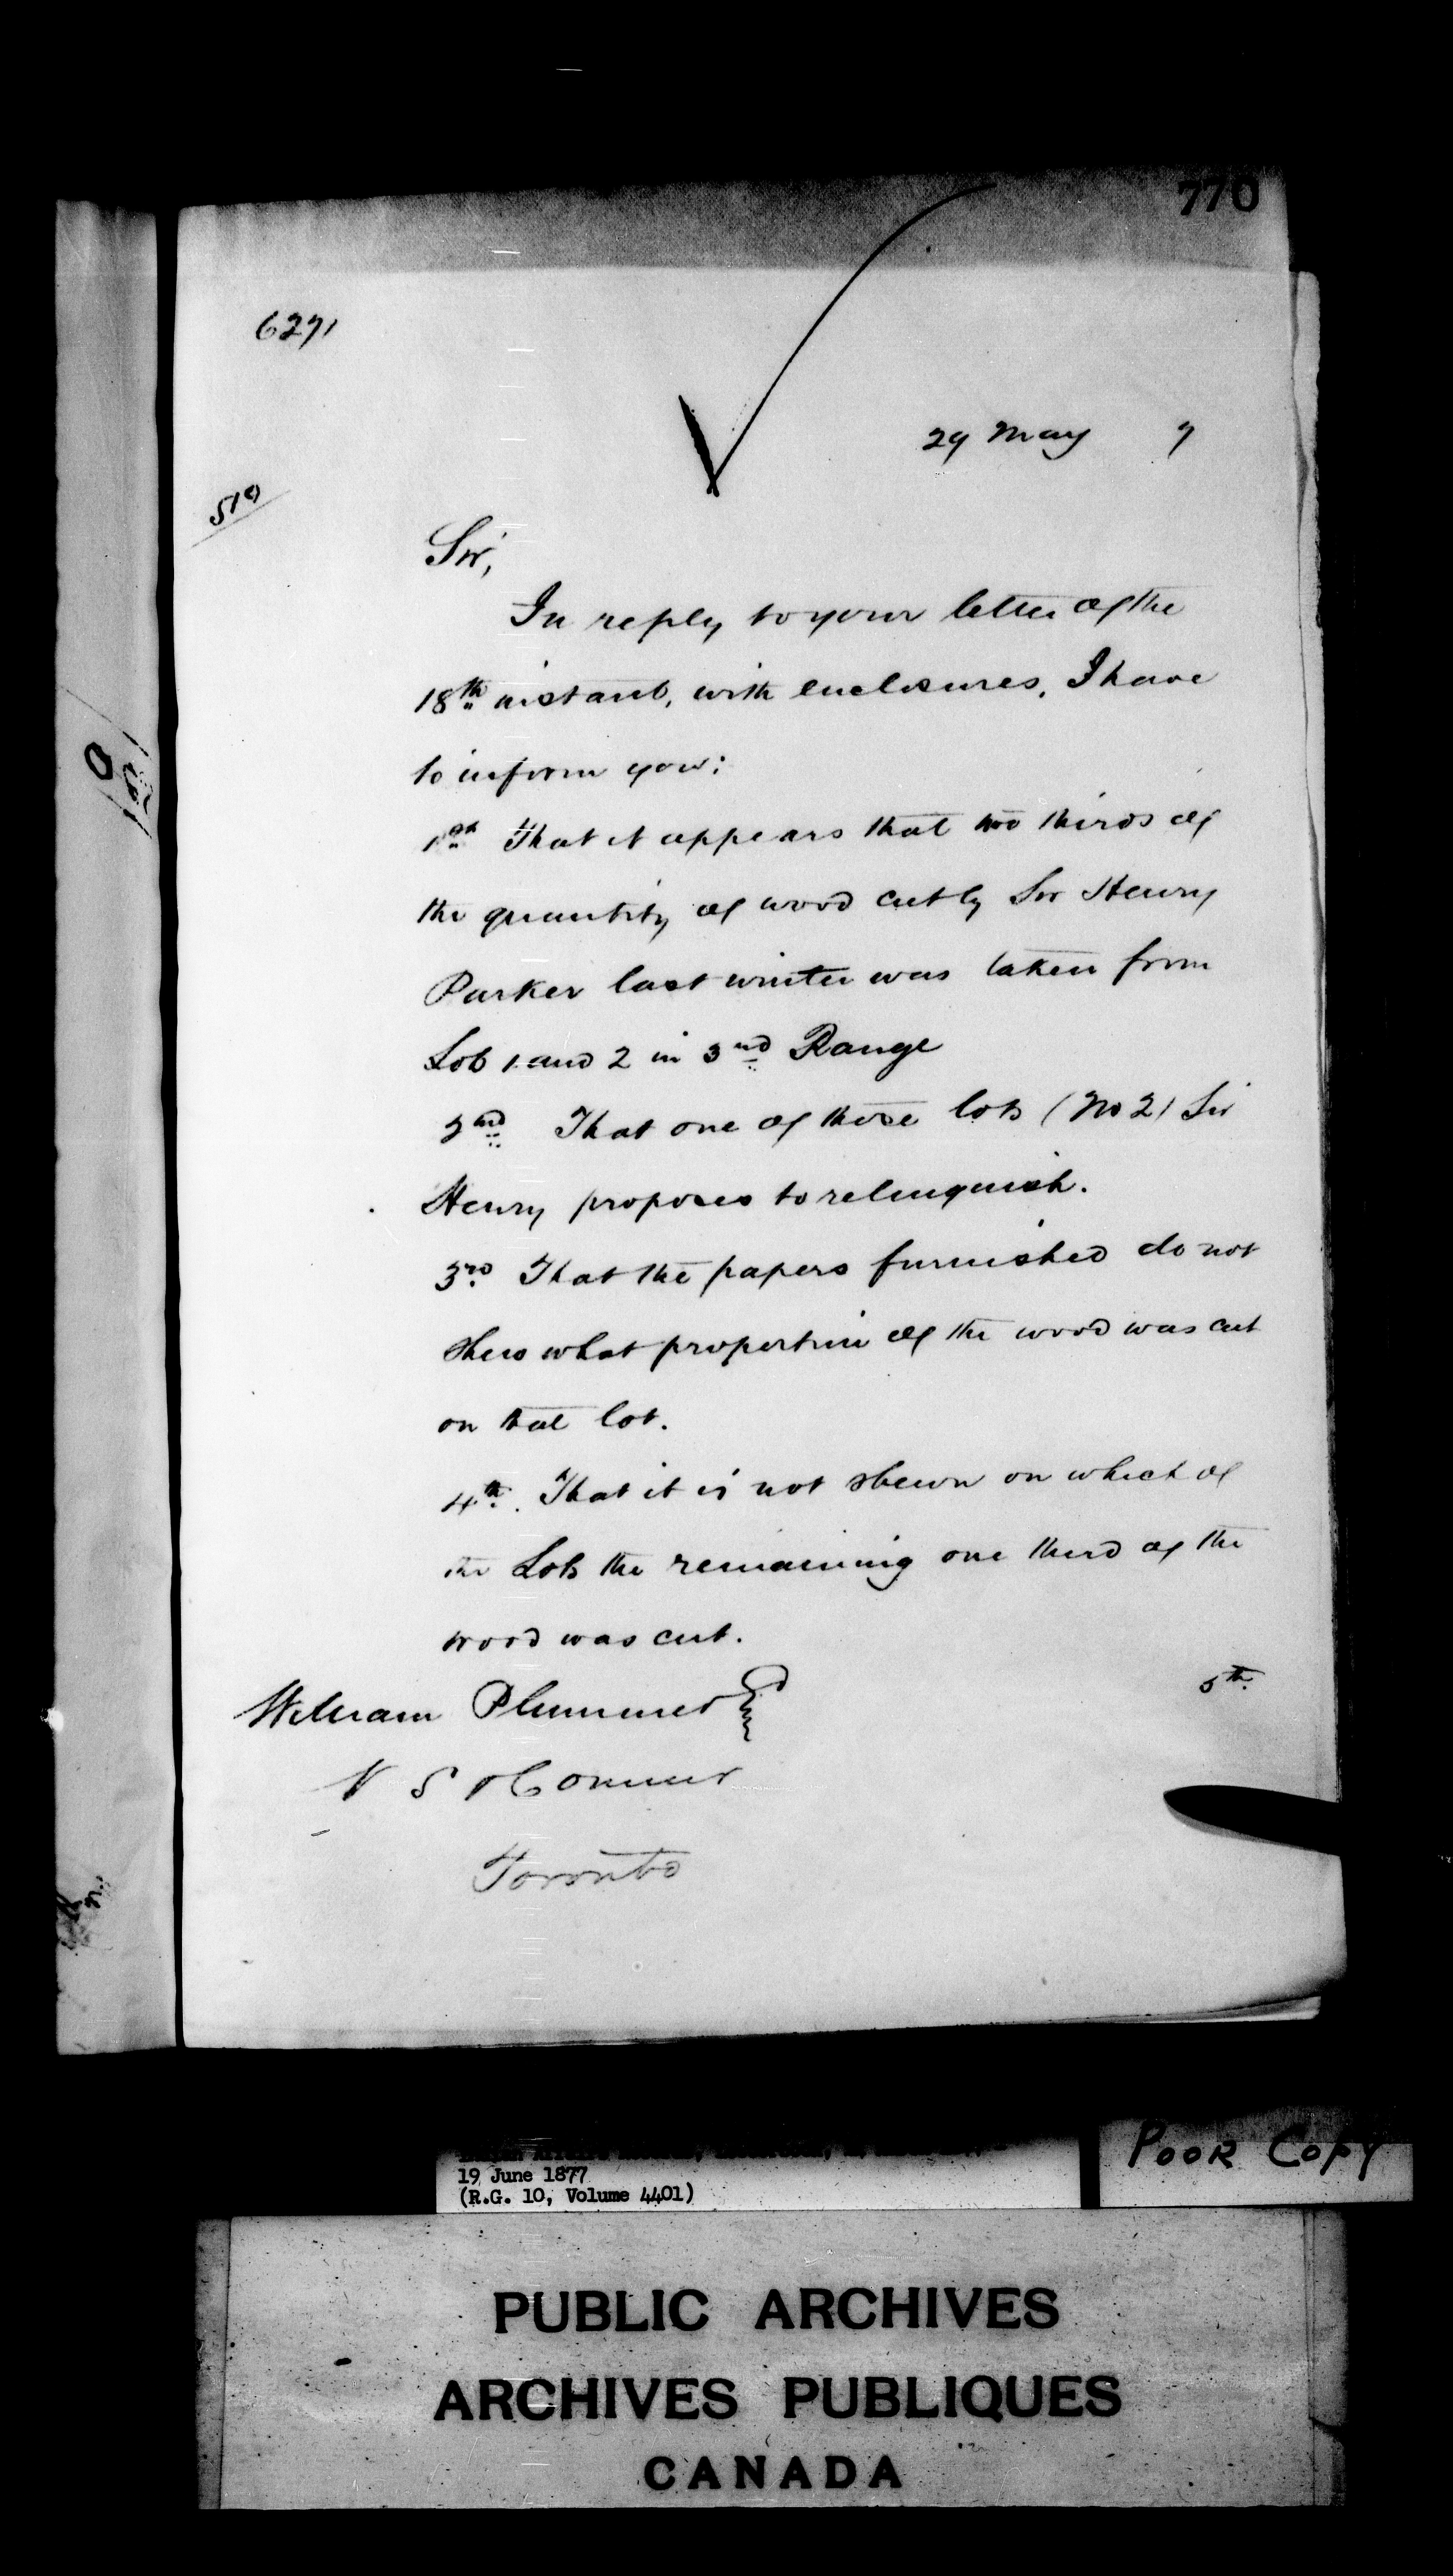 770
6271
29 May 7
519
Sir,
In reply to your letter of the
18th instant, with enclosures, I have
to inform you:
1st That it appears that two thirds of
the quantity of wood cut by Sir Henry
Parker last winter was taken from
Lots 1 and 2 in 3rd Range
2nd That one of these lots (No 2) Sir
Henry proposes to relinquish.
3rd That the papers furnished do not
shew what proportion of the wood was cut
on that lot.
4th. That it is not shewn on which of
the Lots the remaining one third of the
wood was cut.
5th.
William Plummer Esq
Toronto
19 June 1877
(R.G. 10, Volume 4401)
POOR COPY
PUBLIC ARCHIVES
ARCHIVES PUBLIQUES
CANADA